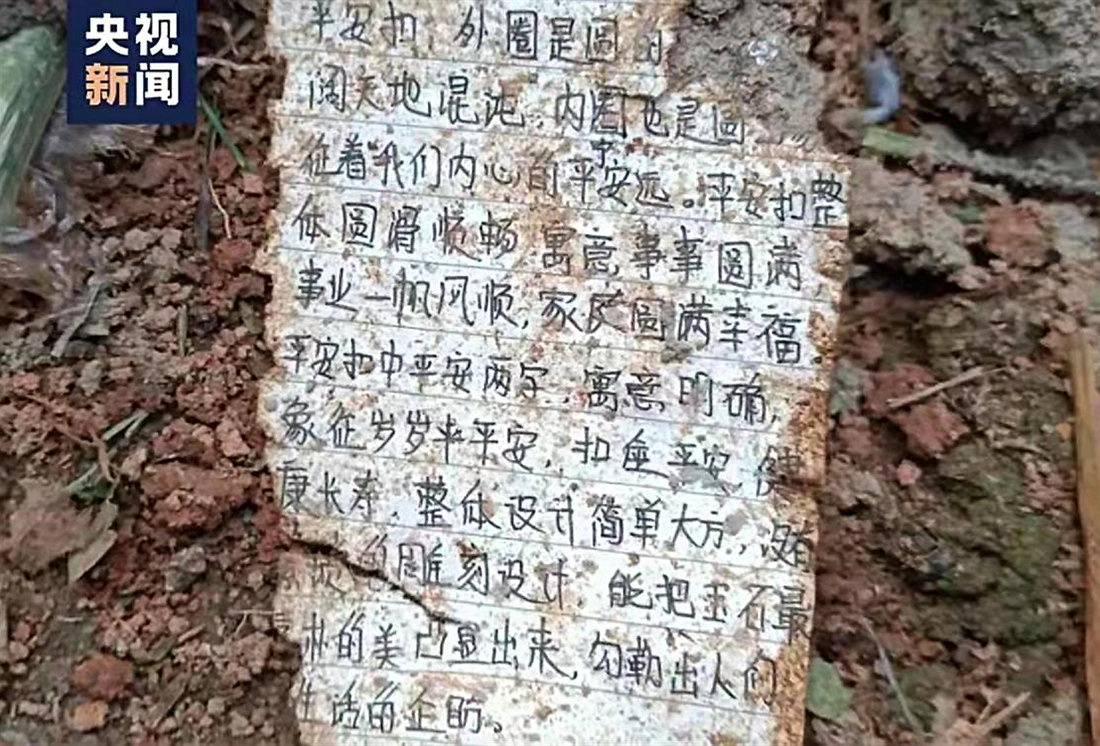 央视
新闻
平安扣 外圈是圆的
阔天地混沌,内圈也是圆
征着我们内心的平安远。平安扣整
体圆滑顺畅 寓意事事圆满
事业一帆风顺,家庭圆满幸福
平安扣中平安两字,寓意明确,
象征岁岁平安,扣座平安,健
康长寿,整体设计简单大方,没有
的雕刻设计,能把玉石最
朴的美凸显出来,勾勒出人们
生活的企盼。